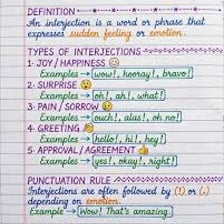 DEFINITION
An interjection is a word or phrase that
expresses sudden feeling or emotion.
TYPES OF INTERJECTIONS
1- JOY / HAPPINESS 😊
Examples → wow!, hooray!, bravo!
2- SURPRISE 😲
Examples → oh!, ah!, what!
3- PAIN / SORROW 😢
Examples → ouch!, alas!, oh no!
4- GREETING 👋
Examples → hello!, hi!, hey!
5- APPROVAL / AGREEMENT 👍
Examples → yes!, okay!, right!
PUNCTUATION RULE
Interjections are often followed by (!) or (,)
depending on emotion.
Example → Wow! That's amazing.